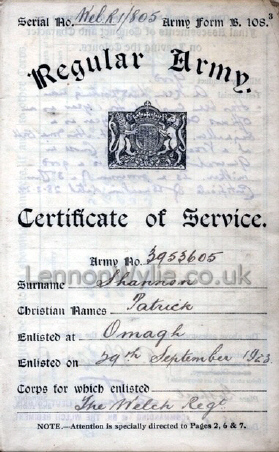 Serial No. Wel R1/805 Army Form B. 108.
Regular Army.
Certificate of Service.
Army No. 3953605
LennonWylie.co.uk
Surname Shannon
Christian Names Patrick
Enlisted at Omagh
Enlisted on 29th September 1923
Corps for which enlisted
The Welch Regt
NOTE.—Attention is specially directed to Pages 2, 6 & 7.